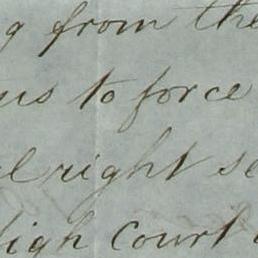 g from the
us to force
l right se
high court